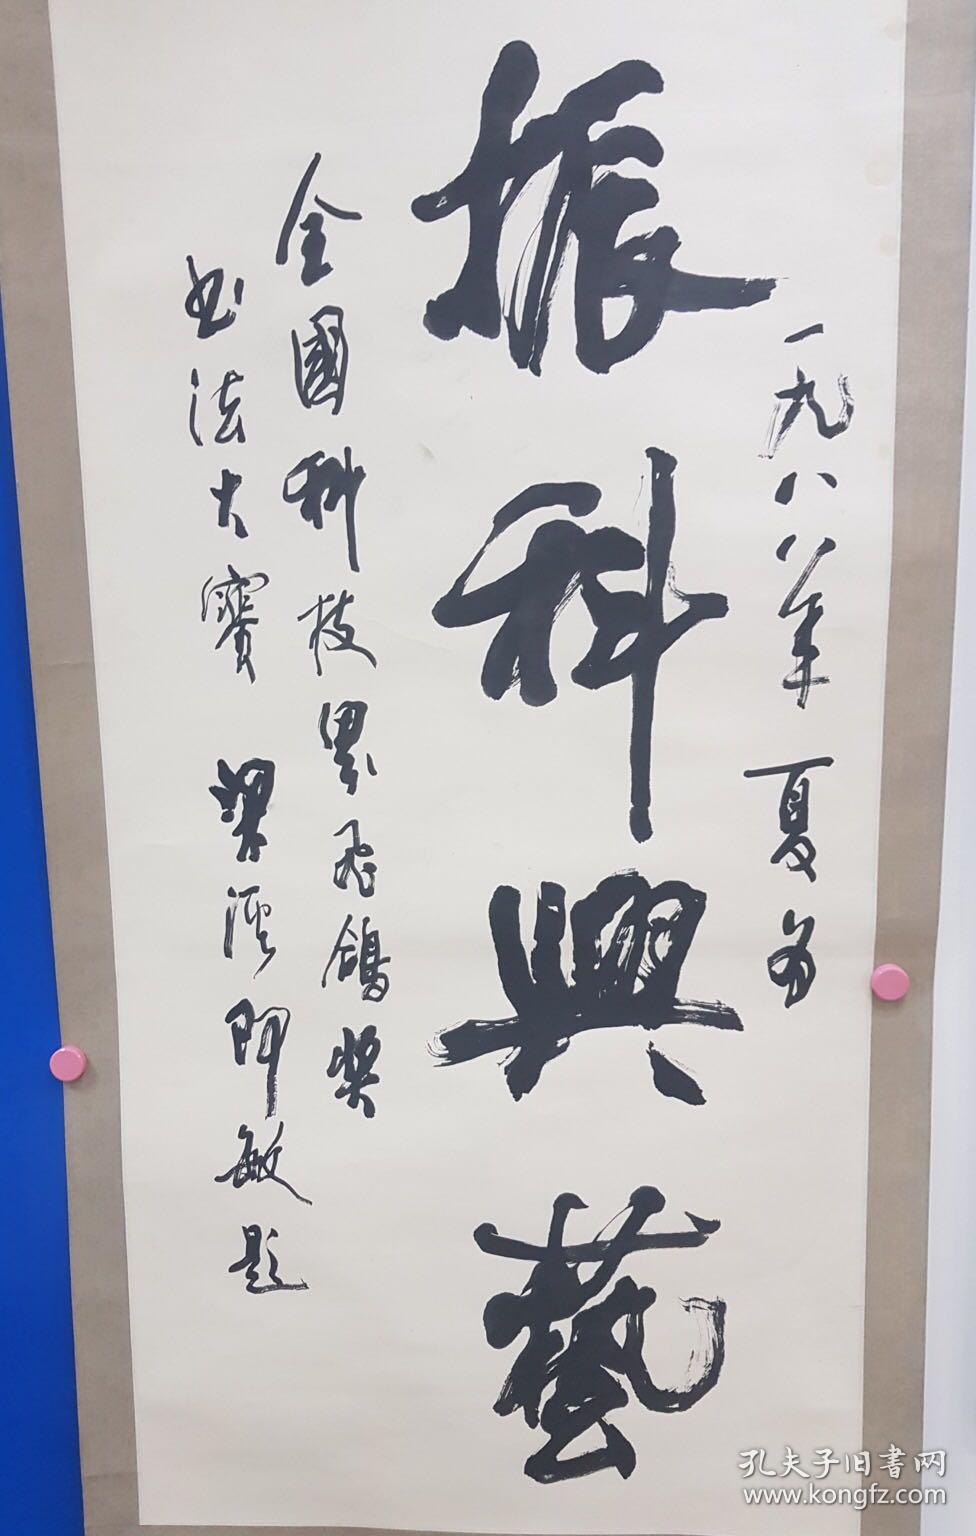 一九八八年夏为
振科興藝
全國科技界飛鴿奖
书法大赛 梁溪 敏题
孔夫子旧書网
www.kongfz.com